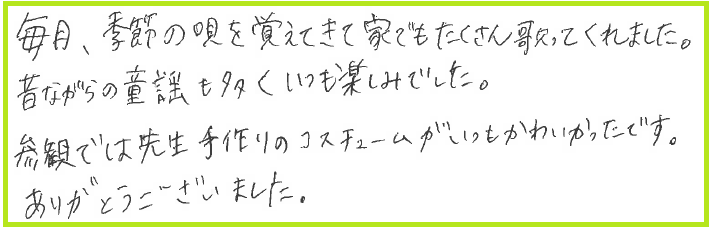 毎月、季節の唄を覚えてきて家でもたくさん歌ってくれました。
昔ながらの童謡も多くいつも楽しみでした。
参観では先生手作りのコスチュームがいつもかわいかったです。
ありがとうございました。